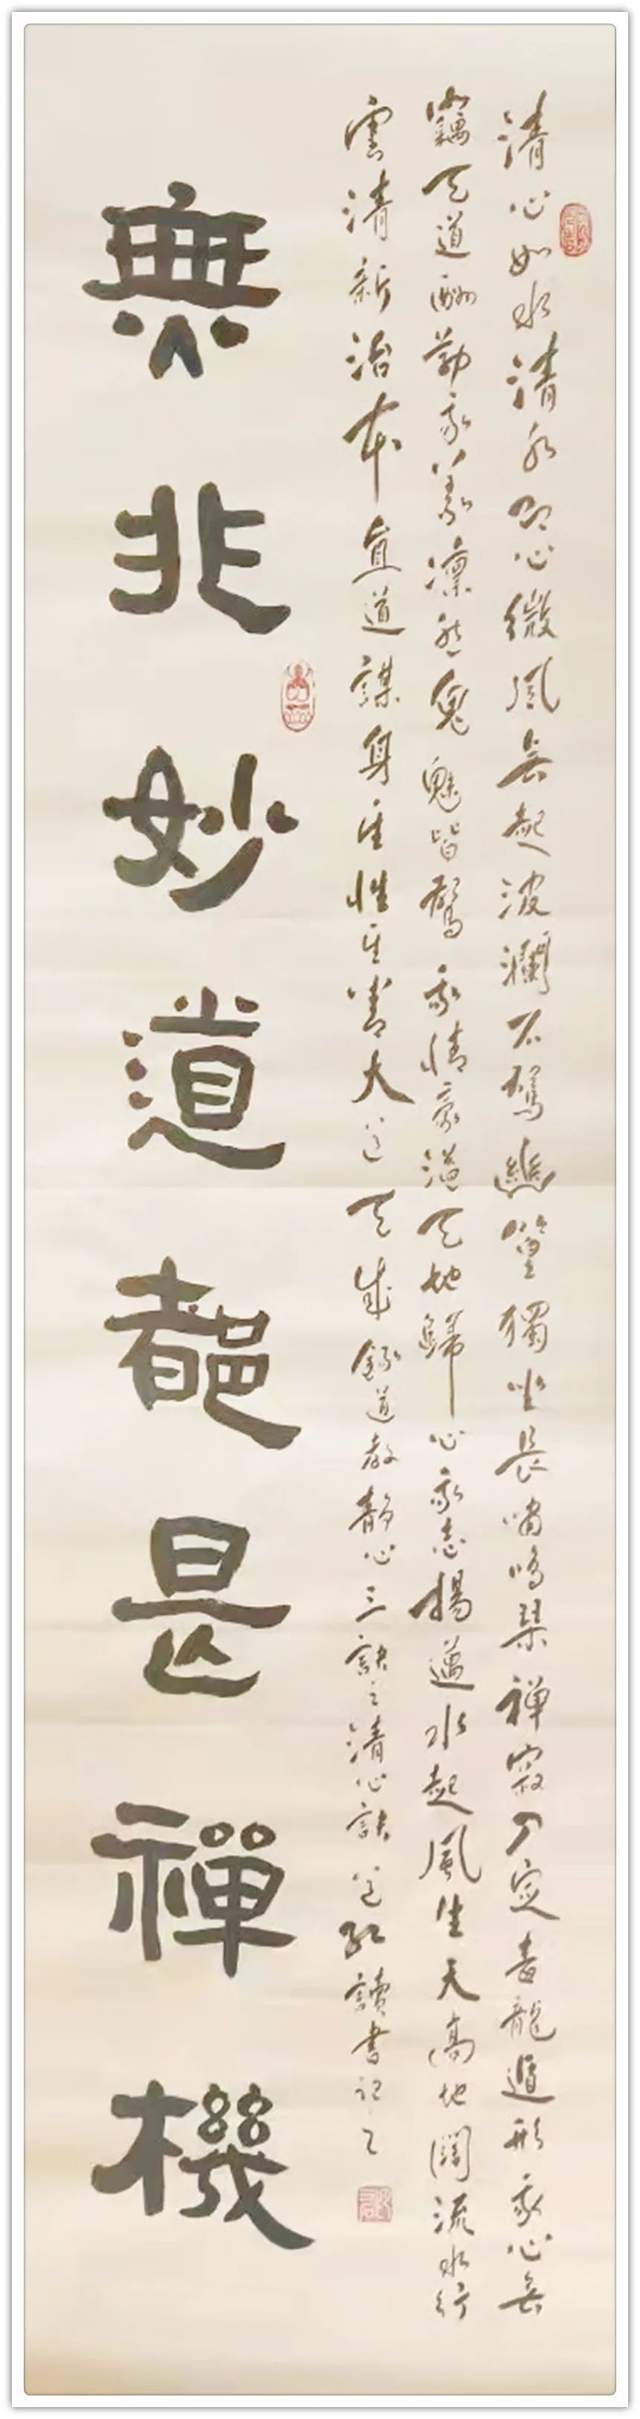 清心如水清水即心微風無起波瀾不驚幽篁獨坐長嘯鳴琴禪寂入定毒龍遁形我心無
竅天道酬勤我義凜然鬼魅皆驚我情豪溢天地歸心我志揚邁水起風生天高地闊流水行
雲清新治本直道謀身至性至善大道天成錄道教靜心三訣之清心訣讀書記
無非妙道都是禪機